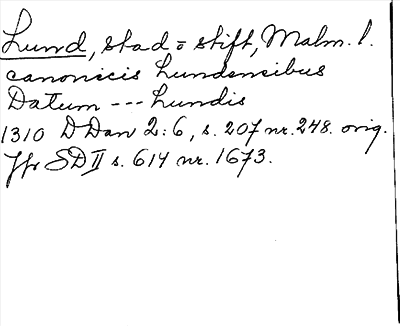 Lund, stad o stift, Malm. l.
canonicis Lundensibus
Datum --- Lundis
1310 D Dan 2:6, s. 207 nr. 248. orig.
Jfr SD II s. 614 nr. 1673.